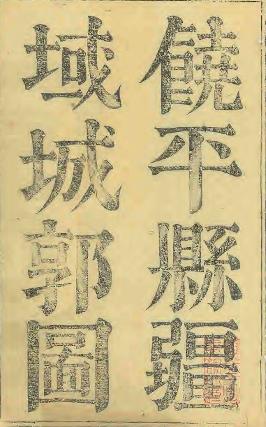 饒平縣疆
域城郭圖